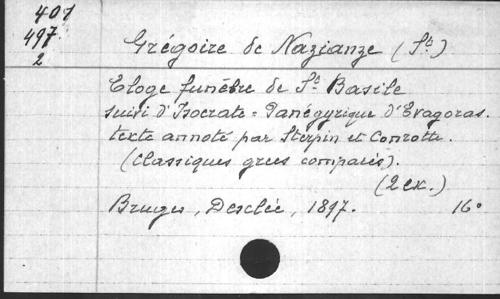 401
497
2
Grégoire de Nazianze (St)
Eloge funèbre de St Basile
suivi d'Isocrate = Panégyrique d'Evagoras.
texte annoté par Sterpin et Conrotte.
(Classiques grecs comparés).
(2 ex.)
Bruges, Desclée, 1897. 16°